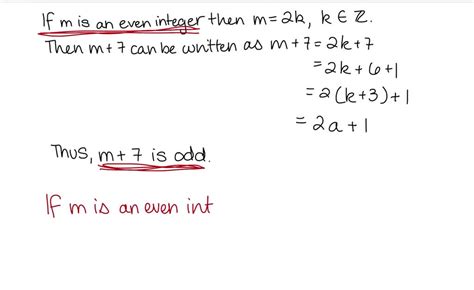 If m is an even integer then m = 2k, k ∈ ℤ.
Then m+7 can be written as m+7 = 2k+7
= 2k+6+1
= 2(k+3)+1
= 2a+1
Thus, m+7 is odd.
If m is an even int